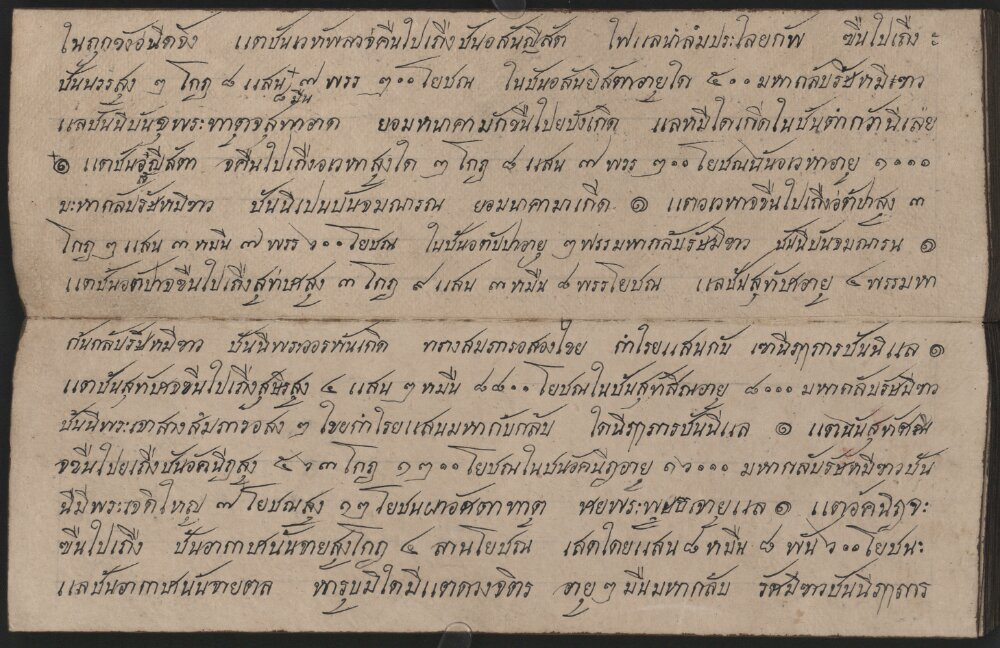 ในถุกวังอนิดจัง แตชันเวหัพลวจคืนไปเถิงชันอสันญีสัต ไฟแลนำลํมประไลยกัพ ขืนไปเถิง
ชันนรรสูง ๒ โกฏ ๘ แสน ๗ พรร ๒๐๐ โยชณ ในชันอสันยีสัตาอายุใด ๕๐๐ มหากลัปรัษหมีขาว
แลชันนีบันจุพระทาตุจุลทาอาด ยอมหนาคามักขืนไปยบังเกิด แลหมีใดเกิดในชันตำกวานีเลย
๑ แตชันอสัญีสัตา จคืนไปเถิงอเวหาสูงใด ๒ โกฏ ๘ แสน ๗ พรร ๒๐๐ โยชณนันอเวหาอายุ ๑๐๐๐
มะหากลัปรัษหมีขาว ชันนีเปนบันจมณารณ ยอมนาคามาเกิด ๑ แตอเวหาจขืนไปเถิงอัตัปาสูง ๓
โกฏ ๒ แสน ๓ หมืน ๗ พรร ๖๐๐ โยชณ ในชันอตัปปาอายุ ๒ พรรมหากลับรัษมีขาว ชันนีบันจมณารน ๑
แตชันอตัปาจขืนไปเถิงสุทํษสูง ๓ โกฏ ๙ แสน ๓ หมืน ๘ พรรโยชณ แลชันสุทํษอายุ ๔ พรรมหา
กันกลัปรัษหมีขาว ชันนีพระออรหันเกิด ทรางสมภารอสองไขย กำไรยแสนกับ เขานีรฦการชันนีแล ๑
แตชันสุทัษจขืนไปเถิงสุษิรสูง ๔ แสน ๒ หมืน ๘๘๐๐ โยชณในชันสุทัสิณอายุ ๘๐๐๐ มหากลับรัษมีขาว
ชันนีพระเจาสางสัมภารอสัง ๒ ไขยกำไรยแสนมหากับกลับ ใดนีรฦการชันนีแล ๑ แตนันสุทัศณ
จขืนไปยเถิงชันอัคนีฏสูง ๕๖๓ โกฏ ๑๒๐๐ โยชณในชนอัคนีฏอายุ ๑๖๐๐๐ มหากลับรัษหมีขาวชัน
นีมีพระเจดิใหญ ๗ โยชณสูง ๑๒ โยชนผาอัศตาทาตุ ศยพระพุษธเจายแล ๑ แตอัคนิฏจะ
ขืนไปเถึง ชันอากาษนันจายสูงโกฏ ๔ ลานโยชณ เสดโดยแสน ๘ หมืน ๘ พัน ๖๐๐ โยชน
แลชันอากาษนันจายตาล หารูบมิใดมีแตดวงจิตร อายุ ๒ มืนมหากลับ รัศมีขาวชันนีรฦการ